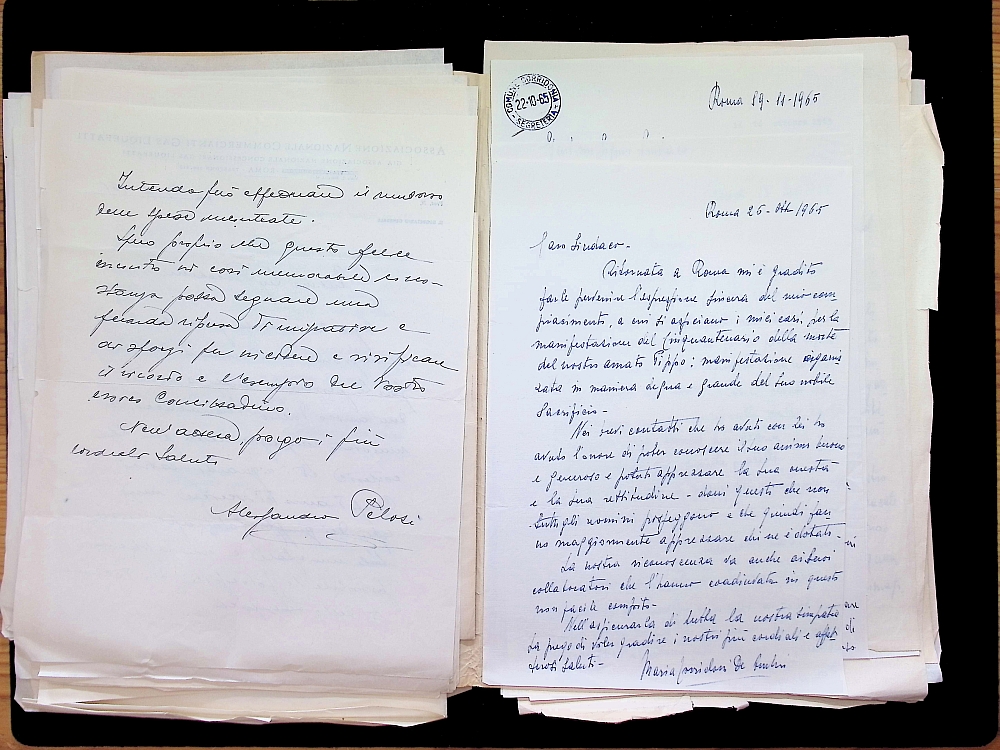 Intendo può effettuare il rimborso
delle spese incontrate.
Spero proprio che questo felice
incontro in così memorabile circo-
stanza possa segnare una
feconda ripresa di iniziative e
di sforzi per tenere e vivificare
il ricordo e l'esempio del Vostro
Concittadino.
Nell'attesa, porgo i più
cordiali saluti
Alessandro Pelosi
COMUNE CORRIDONIA
22-10-65
SEGRETERIA
Roma 19-11-1965
Roma 25-Ott 1965
Caro Sindaco-
Ritornata a Roma mi è gradito
farle pervenire l'espressione sincera del mio com
piacimento, a cui si associano i miei cari, per la
manifestazione del Cinquantenario della morte
del nostro amato Pippo: manifestazione organiz
zata in maniera degna e grande del Suo nobile
Sacrificio-
Nei vari contatti che ho avuti con Lei ho
avuto l'onore di poter conoscere il suo animo buono
e generoso e potuti apprezzare la Sua onestà
e la Sua rettitudine - doni questi che non
tutti gli uomini posseggono e che quindi fan
no maggiormente apprezzare chi ne è dotati-
La nostra riconoscenza va anche ai Suoi
collaboratori che l'hanno coadiuvata in questo
non facile compito-
Nell'assicurarla di tutta la nostra simpatia
La prego di voler gradire i nostri più cordiali e affet
tuosi saluti-
Maria Corridoni